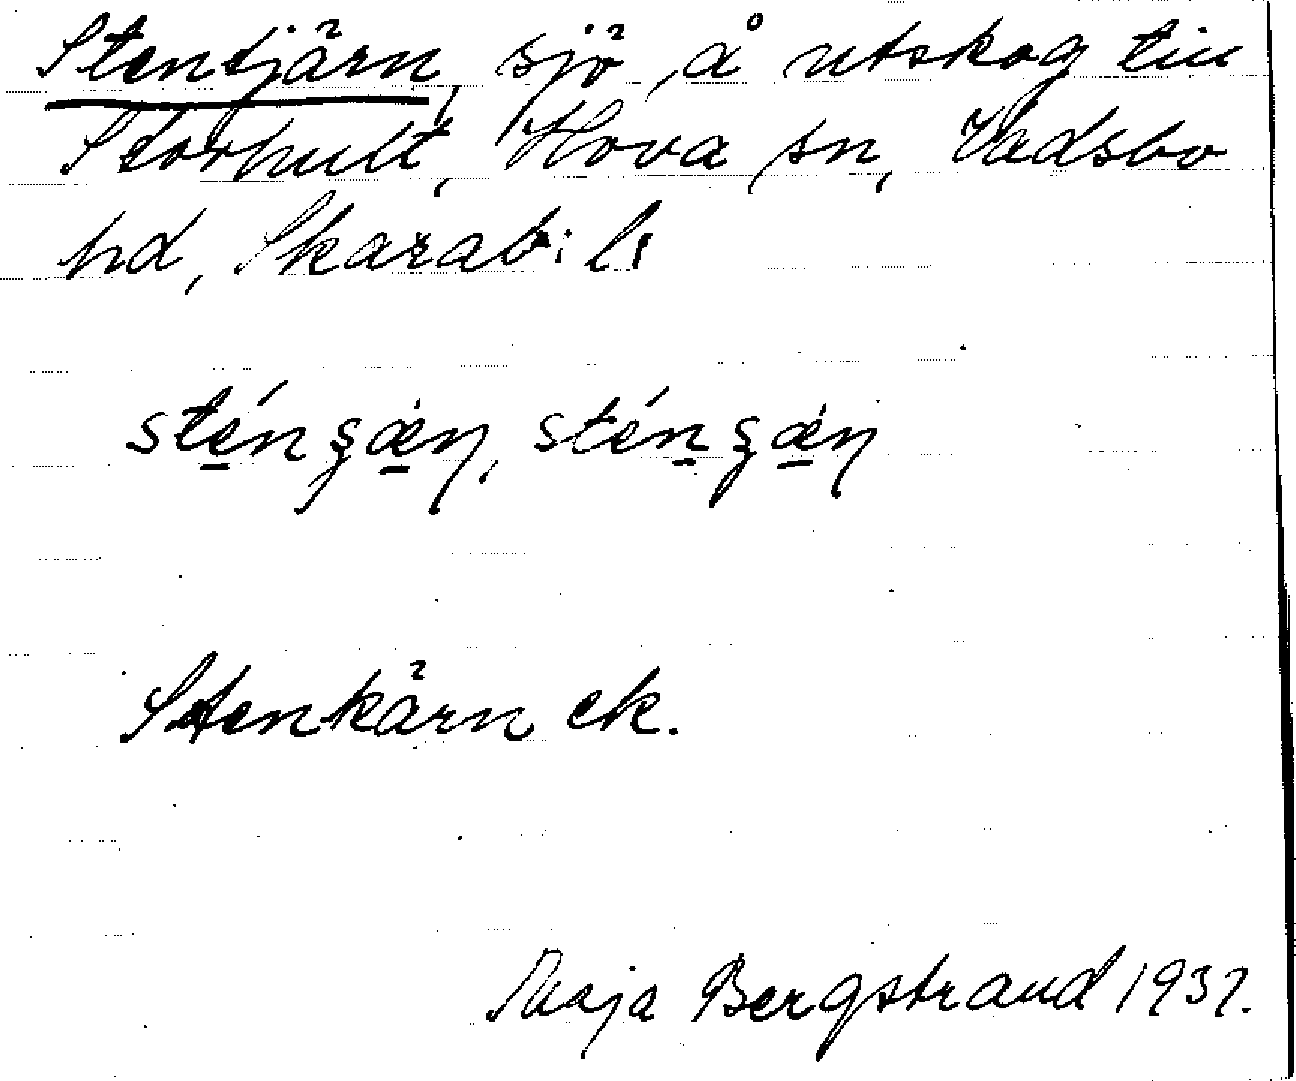 Stentjärn, sjö, å utskog till
Storhult, Hova sn, Vadsbo
hd, Skarab: l:
Stenkärn ek.
Maja Bergstrand 1937.